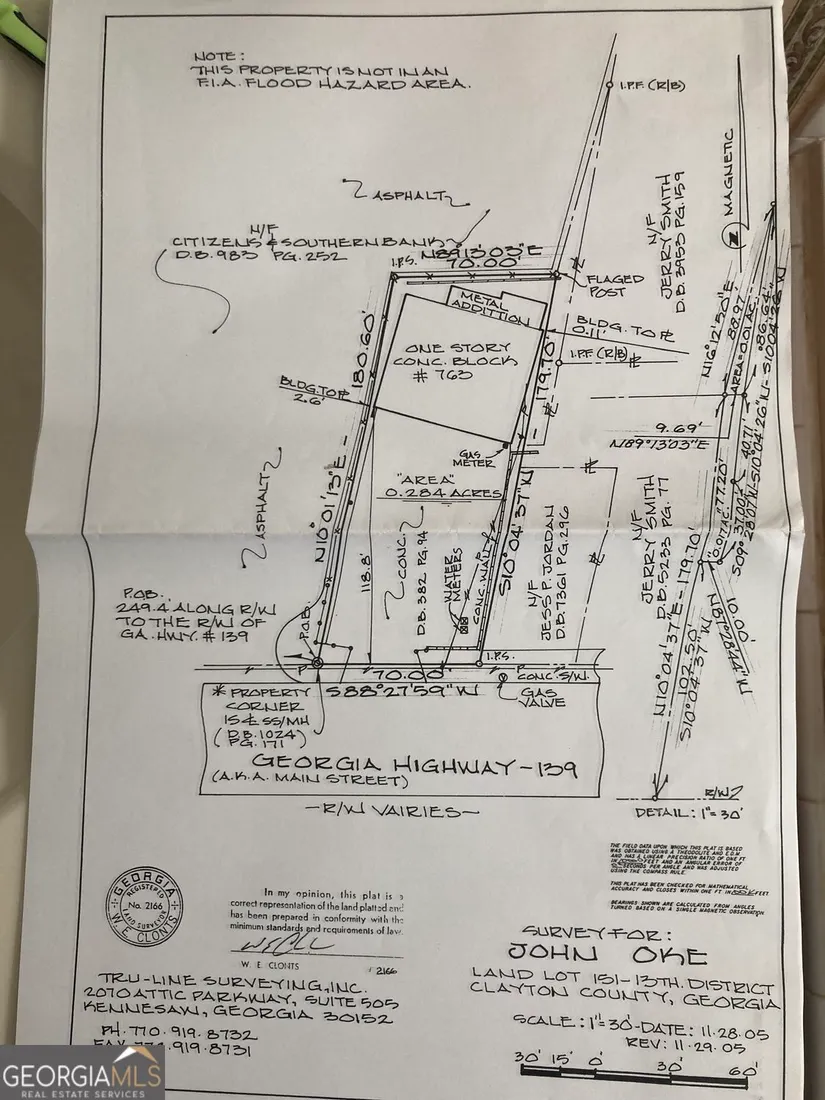 NOTE:
THIS PROPERTY IS NOT IN AN
F.I.A. FLOOD HAZARD AREA.
I.P.F. (R/B)
MAGNETIC
ASPHALT
N/F
JERRY SMITH
D.B. 3953 PG. 159
N/F
CITIZENS & SOUTHERN BANK
D.B. 983 PG. 252
I.P.S.
N89°13'03"E
70.00'
FLAGED
POST
METAL
ADDITTION
BLDG. TO PL
0.11'
I.P.F. (R/B)
ONE STORY
CONC. BLOCK
# 763
180.60'
N10°01'13"E
179.70'
S10°04'37"W
BLDG. TO PL
2.6'
GAS
METER
"AREA"
0.284 ACRES
ASPHALT
118.8'
CONC.
D.B. 382 PG. 94
WATER
METERS
CONC. WALL
N/F
JESS P. JORDAN
D.B. 7361 PG. 296
N/F
JERRY SMITH
D.B. 5233 PG. 77
N16°12'50"E
88.97'
AREA=0.01 AC.
86.64'
S10°04'26"W
9.69'
N89°13'03"E
40.71'
S10°04'26"W
77.20'
37.09'
N10°04'37"E - 179.70'
102.50'
S10°04'37"W
10.00'
P.O.B.
249.4' ALONG R/W
TO THE R/W OF
GA. HWY. # 139
P.O.B.
I.P.S.
70.00'
S88°27'59"W
CONC. S/W
GAS
VALVE
* PROPERTY
CORNER
IS ℄ SS/MH
(D.B. 1024
PG. 171)
GEORGIA HIGHWAY-139
(A.K.A. MAIN STREET)
-R/W VAIRIES-
R/W
DETAIL: 1"=30'
THE FIELD DATA UPON WHICH THIS PLAT IS BASED
WAS OBTAINED USING A THEODOLITE AND E.D.M.
AND HAS A LINEAR PRECISION RATIO OF ONE FT
FEET AND AN ANGULAR ERROR OF
SECONDS PER ANGLE AND WAS ADJUSTED
USING THE COMPASS RULE.
THIS PLAT HAS BEEN CHECKED FOR MATHEMATICAL
ACCURACY AND CLOSES WITHIN ONE FT. IN FEET
BEARINGS SHOWN ARE CALCULATED FROM ANGLES
TURNED BASED ON A SINGLE MAGNETIC OBSERVATION
GEORGIA
REGISTERED
No. 2166
LAND SURVEYOR
W. E. CLONTS
In my opinion, this plat is a
correct representation of the land platted and
has been prepared in conformity with the
minimum standards and requirements of law.
W. E. CLONTS
2166
TRU-LINE SURVEYING, INC.
2070 ATTIC PARKWAY, SUITE 505
KENNESAW, GEORGIA 30152
PH. 770.919.8732
FAX 770.919.8731
SURVEY FOR:
JOHN OKE
LAND LOT 151-13TH. DISTRICT
CLAYTON COUNTY, GEORGIA
SCALE: 1"=30'-DATE: 11.28.05
REV: 11.29.05
30' 15' 0' 30' 60'
GEORGIAMLS
REAL ESTATE SERVICES